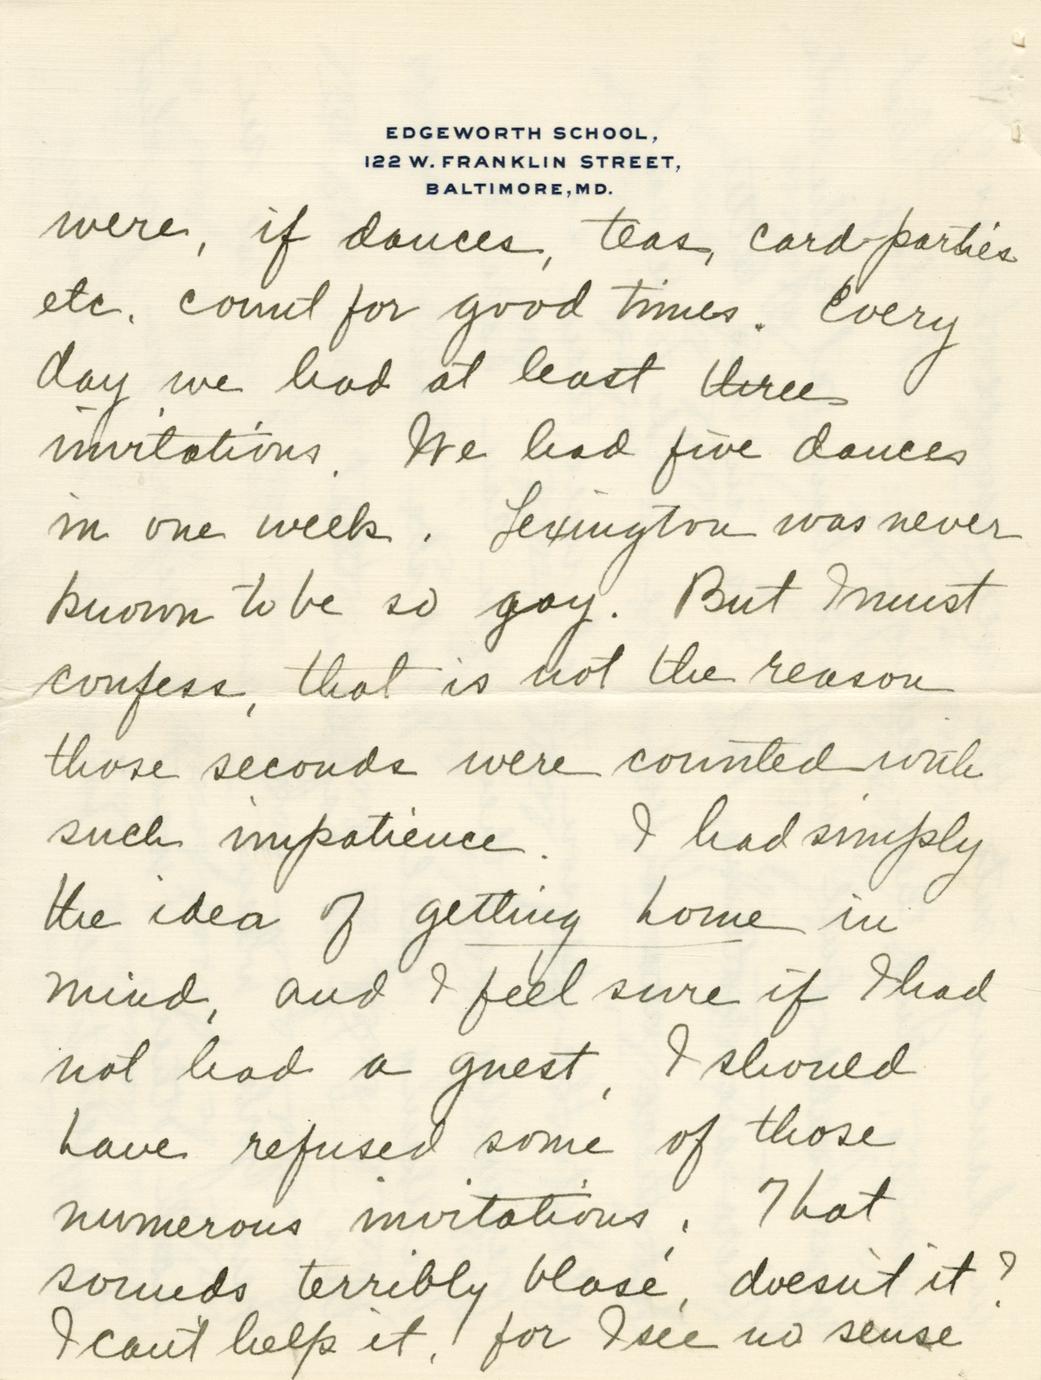 EDGEWORTH SCHOOL,
122 W. FRANKLIN STREET,
BALTIMORE, MD.
were, if dances, teas, card-parties
etc. count for good times. Every
day we had at least three
invitations. We had five dances
in one week. Lexington was never
known to be so gay. But I must
confess, that is not the reason
those seconds were counted with
such impatience. I had simply
the idea of getting home in
mind, and I feel sure if I had
not had a guest, I should
have refused some of those
numerous invitations. That
sounds terribly blasé, doesn't it?
I can't help it, for I see no sense